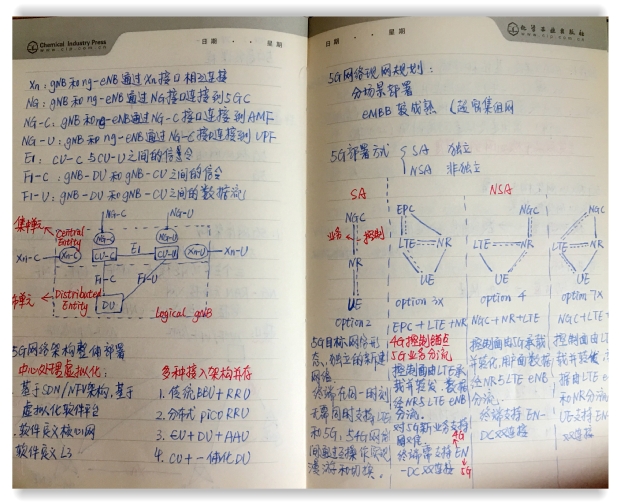 Chemical Industry Press
日期 · · 星期
Xn：gNB和ng-eNB通过Xn接口相互连接
NG：gNB和ng-eNB通过NG接口连接到5GC
NG-C：gNB和ng-eNB通过NG-C接口连接到AMF
NG-U：gNB和ng-eNB通过NG-C接口连接到UPF
E1：CU-C与CU-U之间的信令
F1-C：gNB-DU和gNB-CU之间的信令
F1-U：gNB-DU和gNB-CU之间的数据流
NG-C NG-U
集中单元 Central Entity
NG-C NG-U
Xn-C Xn-C CU-C E1 CU-U Xn-U Xn-U
F1-C F1-U
布单元 Distributed Entity
DU
Logical gNB
5G网络架构整体部署
中心处理虚拟化：
基于SDN/NFV架构，基于
虚拟化软件平台
软件定义核心网
软件定义L3
多种接入架构并存
1. 传统BBU+RRU
2. 分布式pico RRU
3. CU+DU+AAU
4. CU+一体化DU
日期 · · 星期
化学工业出版社
5G网络现网规划：
分场景部署
eMBB最成熟
5G部署方式 SA 独立
NSA 非独立
SA NSA
NGC EPC NGC NGC
业务 控制
LTE NR LTE NR LTE NR
NR
UE UE UE UE
option2 option 3x option 4 option 7x
5G目标网络形
态，独立的新建
网络
终端在同一时刻
无需同时支持LTE
和5G，5G4G网络
间通过互操作实现
漫游和切换。
EPC+LTE+NR
4G控制锚点
5G业务分流
控制面由LTE承
载并转发，数据
经NR与LTE eNB
分流。
对5G新业务支持
终端需支持EN
-DC双连接
4G
5G
NGC+NR+LTE
控制面由5G承载
并转发，用户面数据
经NR与LTE eNB
分流。
终端支持EN-
DC双连接
NGC+LTE
控制面由LT
载并转发，
据由LTE e
和NR分流
UE支持EN
双连接